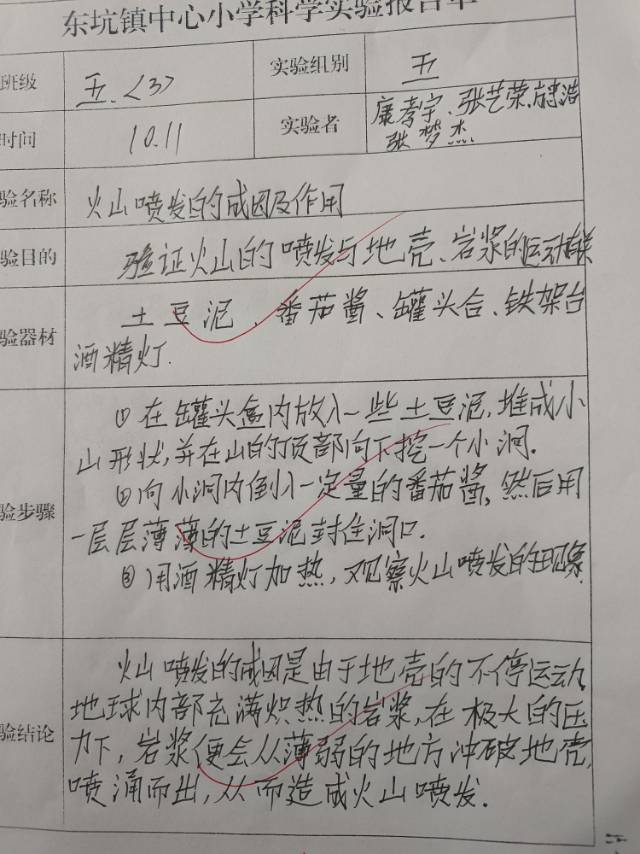 东坑镇中心小学科学实验报告单
班级 五.<3> 实验组别 五
时间 10.11 实验者 康孝宇、张艺荣、
张梦杰
验名称 火山喷发的成因及作用
验目的 验证火山的喷发与地壳、岩浆的运动有关
验器材 土豆泥、番茄酱、罐头合、铁架台
酒精灯.
验步骤 ①在罐头盒内放入一些土豆泥,堆成小
山形状,并在山的顶部向下挖一个小洞.
②向小洞内倒入一定量的番茄酱,然后用
一层层薄薄的土豆泥封住洞口.
③用酒精灯加热,观察火山喷发的现象
验结论 火山喷发的成因是由于地壳的不停运动,
地球内部充满炽热的岩浆,在极大的压
力下,岩浆便会从薄弱的地方冲破地壳,
喷涌而出,从而造成火山喷发.